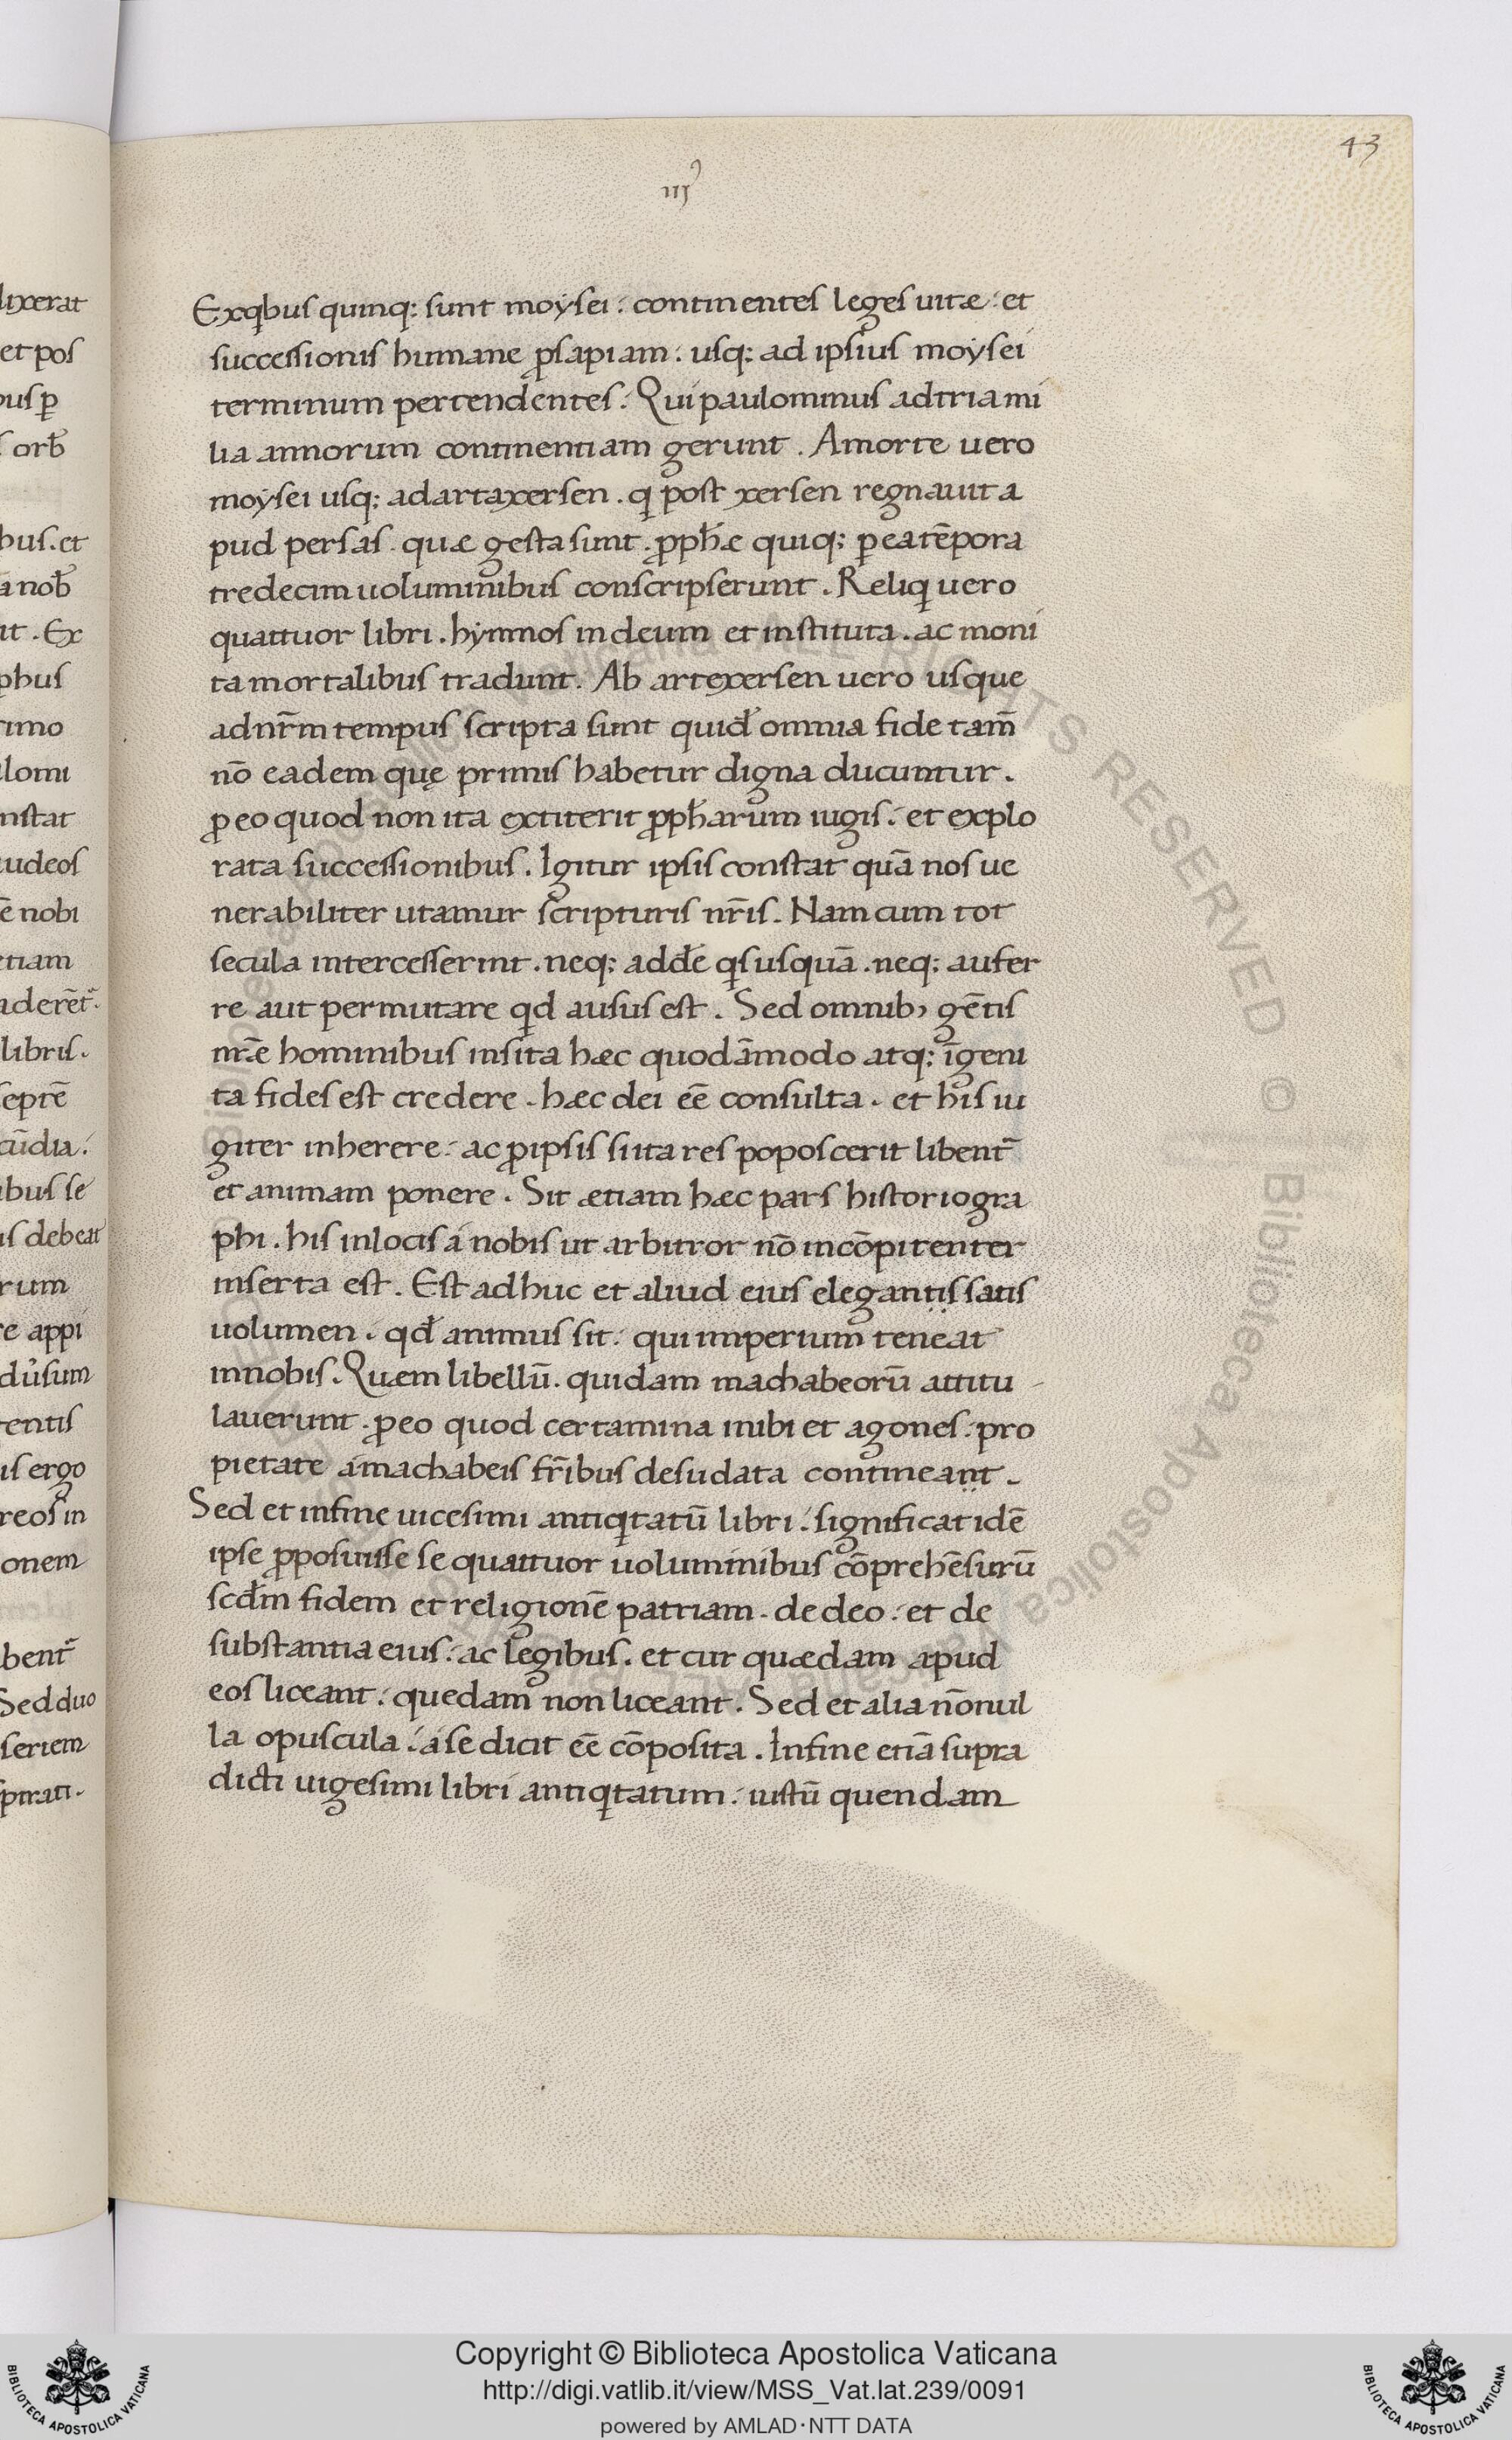 43
iij⁹
Exqbus quinq; sunt moÿsei : continentes leges uitæ : et
successionis humane ꝓsapiam : usq; ad ipsius moÿsei
terminum pertendentes : Qui paulominus adtria mi
lia annorum continentiam gerunt . A morte uero
moÿsei usq; ad artaxersen . q post xersen regnauit a
pud persas . quæ gesta sunt . ꝓph̄æ quiq; ꝑ ea tēpora
tredecim uoluminibus conscripserunt . Reliq uero
quattuor libri . hÿmnos in deum et instituta . ac moni
ta mortalibus tradunt . Ab artexersen uero usque
ad nr̄m tempus scripta sunt quid̄ omnia fide tam̄
nō eadem quę primis habetur digna ducuntur .
ꝓ eo quod non ita extiterit ꝓph̄arum iugis : et explo
rata successionibus . Igitur ipsis constat quā nos ue
nerabiliter utamur scripturis nr̄is . Nam cum tot
secula intercesserint . neq; add̄e qsusquā . neq; aufer
re aut permutare qd ausus est . Sed omnib; gētis
nr̄e hominibus insita hæc quodāmodo atq; īgeni
ta fides est credere . hæc dei eē consulta . et his iu
giter inherere : ac ꝓ ipsis si ita res poposcerit libent̄
et animam ponere . Sit ætiam hæc pars historiogra
phi . his in locis á nobis ut arbitror nō incōpitenter
inserta est . Est adhuc et aliud eius elegantis satis
uolumen . qd̄ animus sit : qui imperium teneat
in nobis . Quem libellū . quidam machabeorū attitu
lauerunt . ꝓ eo quod certamina inibi et agones : pro
pietate á machabeis fr̄ibus desudata contineant .
Sed et in fine uicesimi antiqtatū libri : significat idē
ipse ꝓposuisse se quattuor uoluminibus cōprehēsurū
scd̄m fidem et religionē patriam . de deo : et de
substantia eius : ac legibus . et cur quædam apud
eos liceant : quedam non liceant . Sed et alia nōnul
la opuscula : á se dicit eē cōposita . In fine etiā supra
dicti uigesimi libri antiqtatum : iustū quendam
Copyright © Biblioteca Apostolica Vaticana
http://digi.vatlib.it/view/MSS_Vat.lat.239/0091
powered by AMLAD·NTT DATA